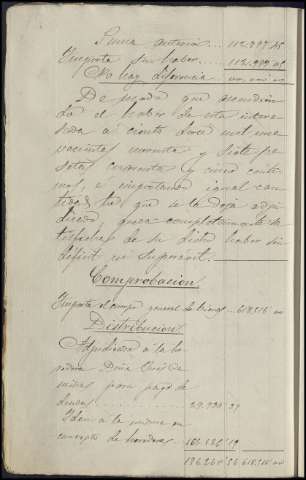 Suma anterior ... 112.997 45
Importa su haber ... 112.997 45
No hay diferencia
De modo que ascendien
do el haber de esta intere
sada a ciento doce mil nove
cientas noventa y siete pe
setas cuarenta y cinco centi
mos, e importando igual can
tidad lo que se le deja adju
dicado, queda completamente sa
tisfecha de su dicho haber sin
déficit ni superávit.
Comprobación
Importa el cuerpo general de bienes 618,516
Distribución
Adjudicado a la he
redera Doña
para pago de
deudas
Idem a la misma en
concepto de heredera
618,516